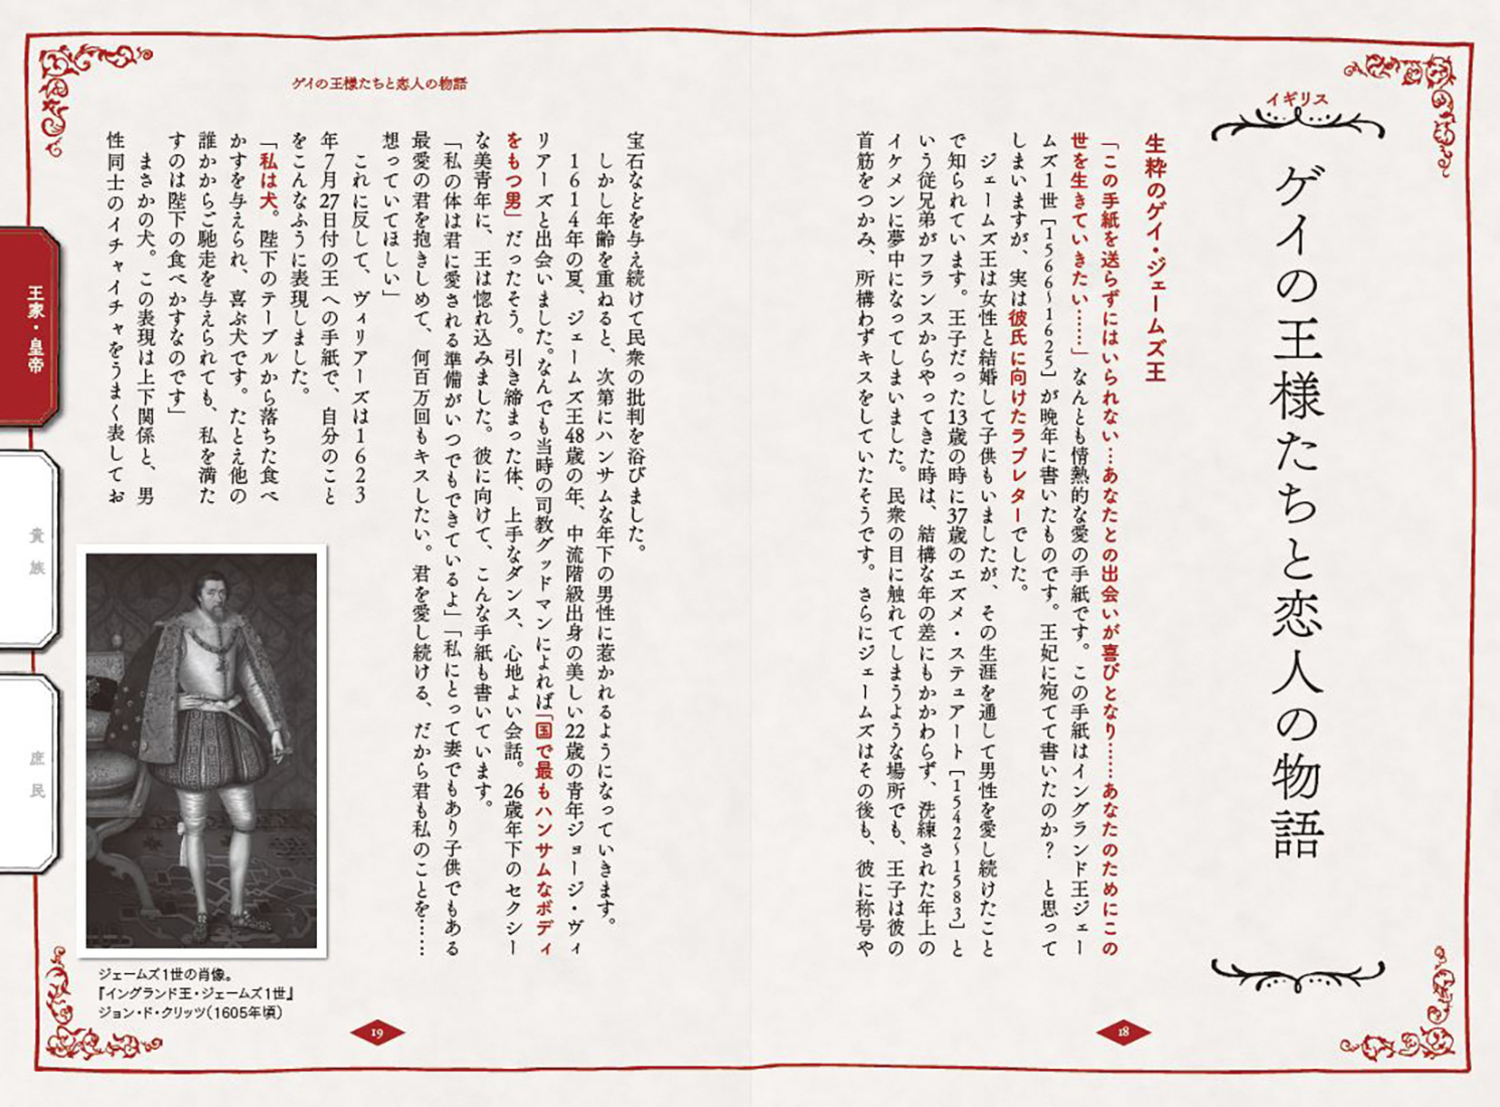 イギリス
ゲイの王様たちと恋人の物語
生粋のゲイ・ジェームズ王
「この手紙を送らずにはいられない…あなたとの出会いが喜びとなり……あなたのためにこの
世を生きていきたい……」なんとも情熱的な愛の手紙です。この手紙はイングランド王ジェー
ムズ1世［1566〜1625］が晩年に書いたものです。王妃に宛てて書いたのか？　と思って
しまいますが、実は彼氏に向けたラブレターでした。
ジェームズ王は女性と結婚して子供もいましたが、その生涯を通して男性を愛し続けたこと
で知られています。王子だった13歳の時に37歳のエズメ・ステュアート［1542〜1583］と
いう従兄弟がフランスからやってきた時は、結構な年の差にもかかわらず、洗練された年上の
イケメンに夢中になってしまいました。民衆の目に触れてしまうような場所でも、王子は彼の
首筋をつかみ、所構わずキスをしていたそうです。さらにジェームズはその後も、彼に称号や
18
ゲイの王様たちと恋人の物語
宝石などを与え続けて民衆の批判を浴びました。
しかし年齢を重ねると、次第にハンサムな年下の男性に惹かれるようになっていきます。
1614年の夏、ジェームズ王48歳の年、中流階級出身の美しい22歳の青年ジョージ・ヴィ
リアーズと出会いました。なんでも当時の司教グッドマンによれば「国で最もハンサムなボディ
をもつ男」だったそう。引き締まった体、上手なダンス、心地よい会話。26歳年下のセクシー
な美青年に、王は惚れ込みました。彼に向けて、こんな手紙も書いています。
「私の体は君に愛される準備がいつでもできているよ」「私にとって妻でもあり子供でもある
最愛の君を抱きしめて、何百万回もキスしたい。君を愛し続ける、だから君も私のことを……
想っていてほしい」
これに反して、ヴィリアーズは1623
年7月27日付の王への手紙で、自分のこと
をこんなふうに表現しました。
「私は犬。陛下のテーブルから落ちた食べ
かすを与えられ、喜ぶ犬です。たとえ他の
誰かからご馳走を与えられても、私を満た
すのは陛下の食べかすなのです」
まさかの犬。この表現は上下関係と、男
性同士のイチャイチャをうまく表してお
ジェームズ1世の肖像。
『イングランド王・ジェームズ1世』
ジョン・ド・クリッツ（1605年頃）
19
王家・皇帝
貴族
庶民